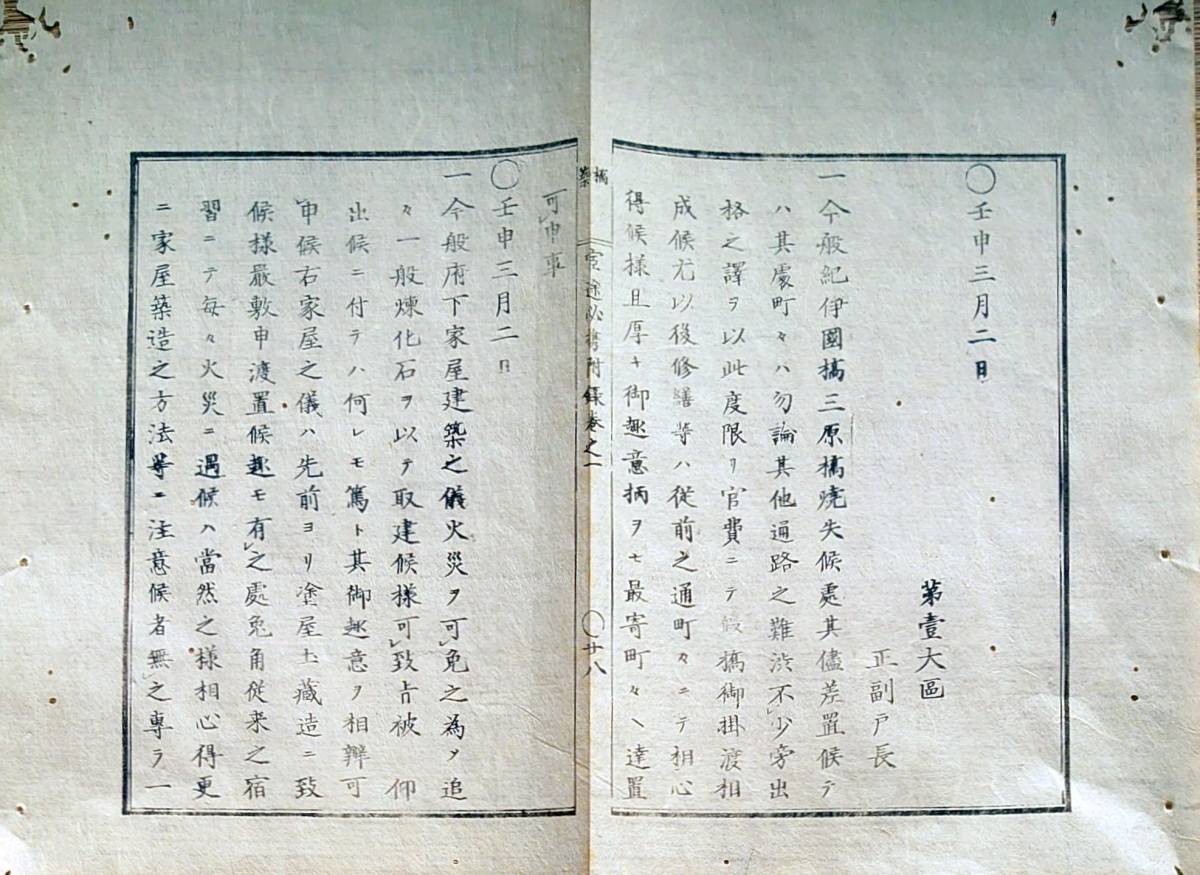 〇壬申三月二日
第壹大區
正副戸長
一今般紀伊國橋三原橋焼失候處其儘差置候テ
ハ其處町々ハ勿論其他通路之難渋不少旁出
格之譯ヲ以此度限リ官費ニテ假橋御掛渡相
成候尤以後修繕等ハ従前之通町々ニテ相心
得候様且厚キ御趣意柄ヲモ最寄町々ヘ達置
橋
築
必携附録巻之一
〇廿八
可申事
〇壬申三月二日
一今般府下家屋建築之儀火災ヲ可免之為メ追
々一般煉化石ヲ以テ取建候様可致旨被 仰
出候ニ付テハ何レモ篤ト其御趣意ヲ相辨可
申候右家屋之儀ハ先前ヨリ塗屋土藏造ニ致
候様嚴敷申渡置候趣モ有之處兎角従来之宿
習ニテ毎々火災ニ遇候ハ當然之様相心得更
ニ家屋築造之方法等ニ注意候者無之専ラ一